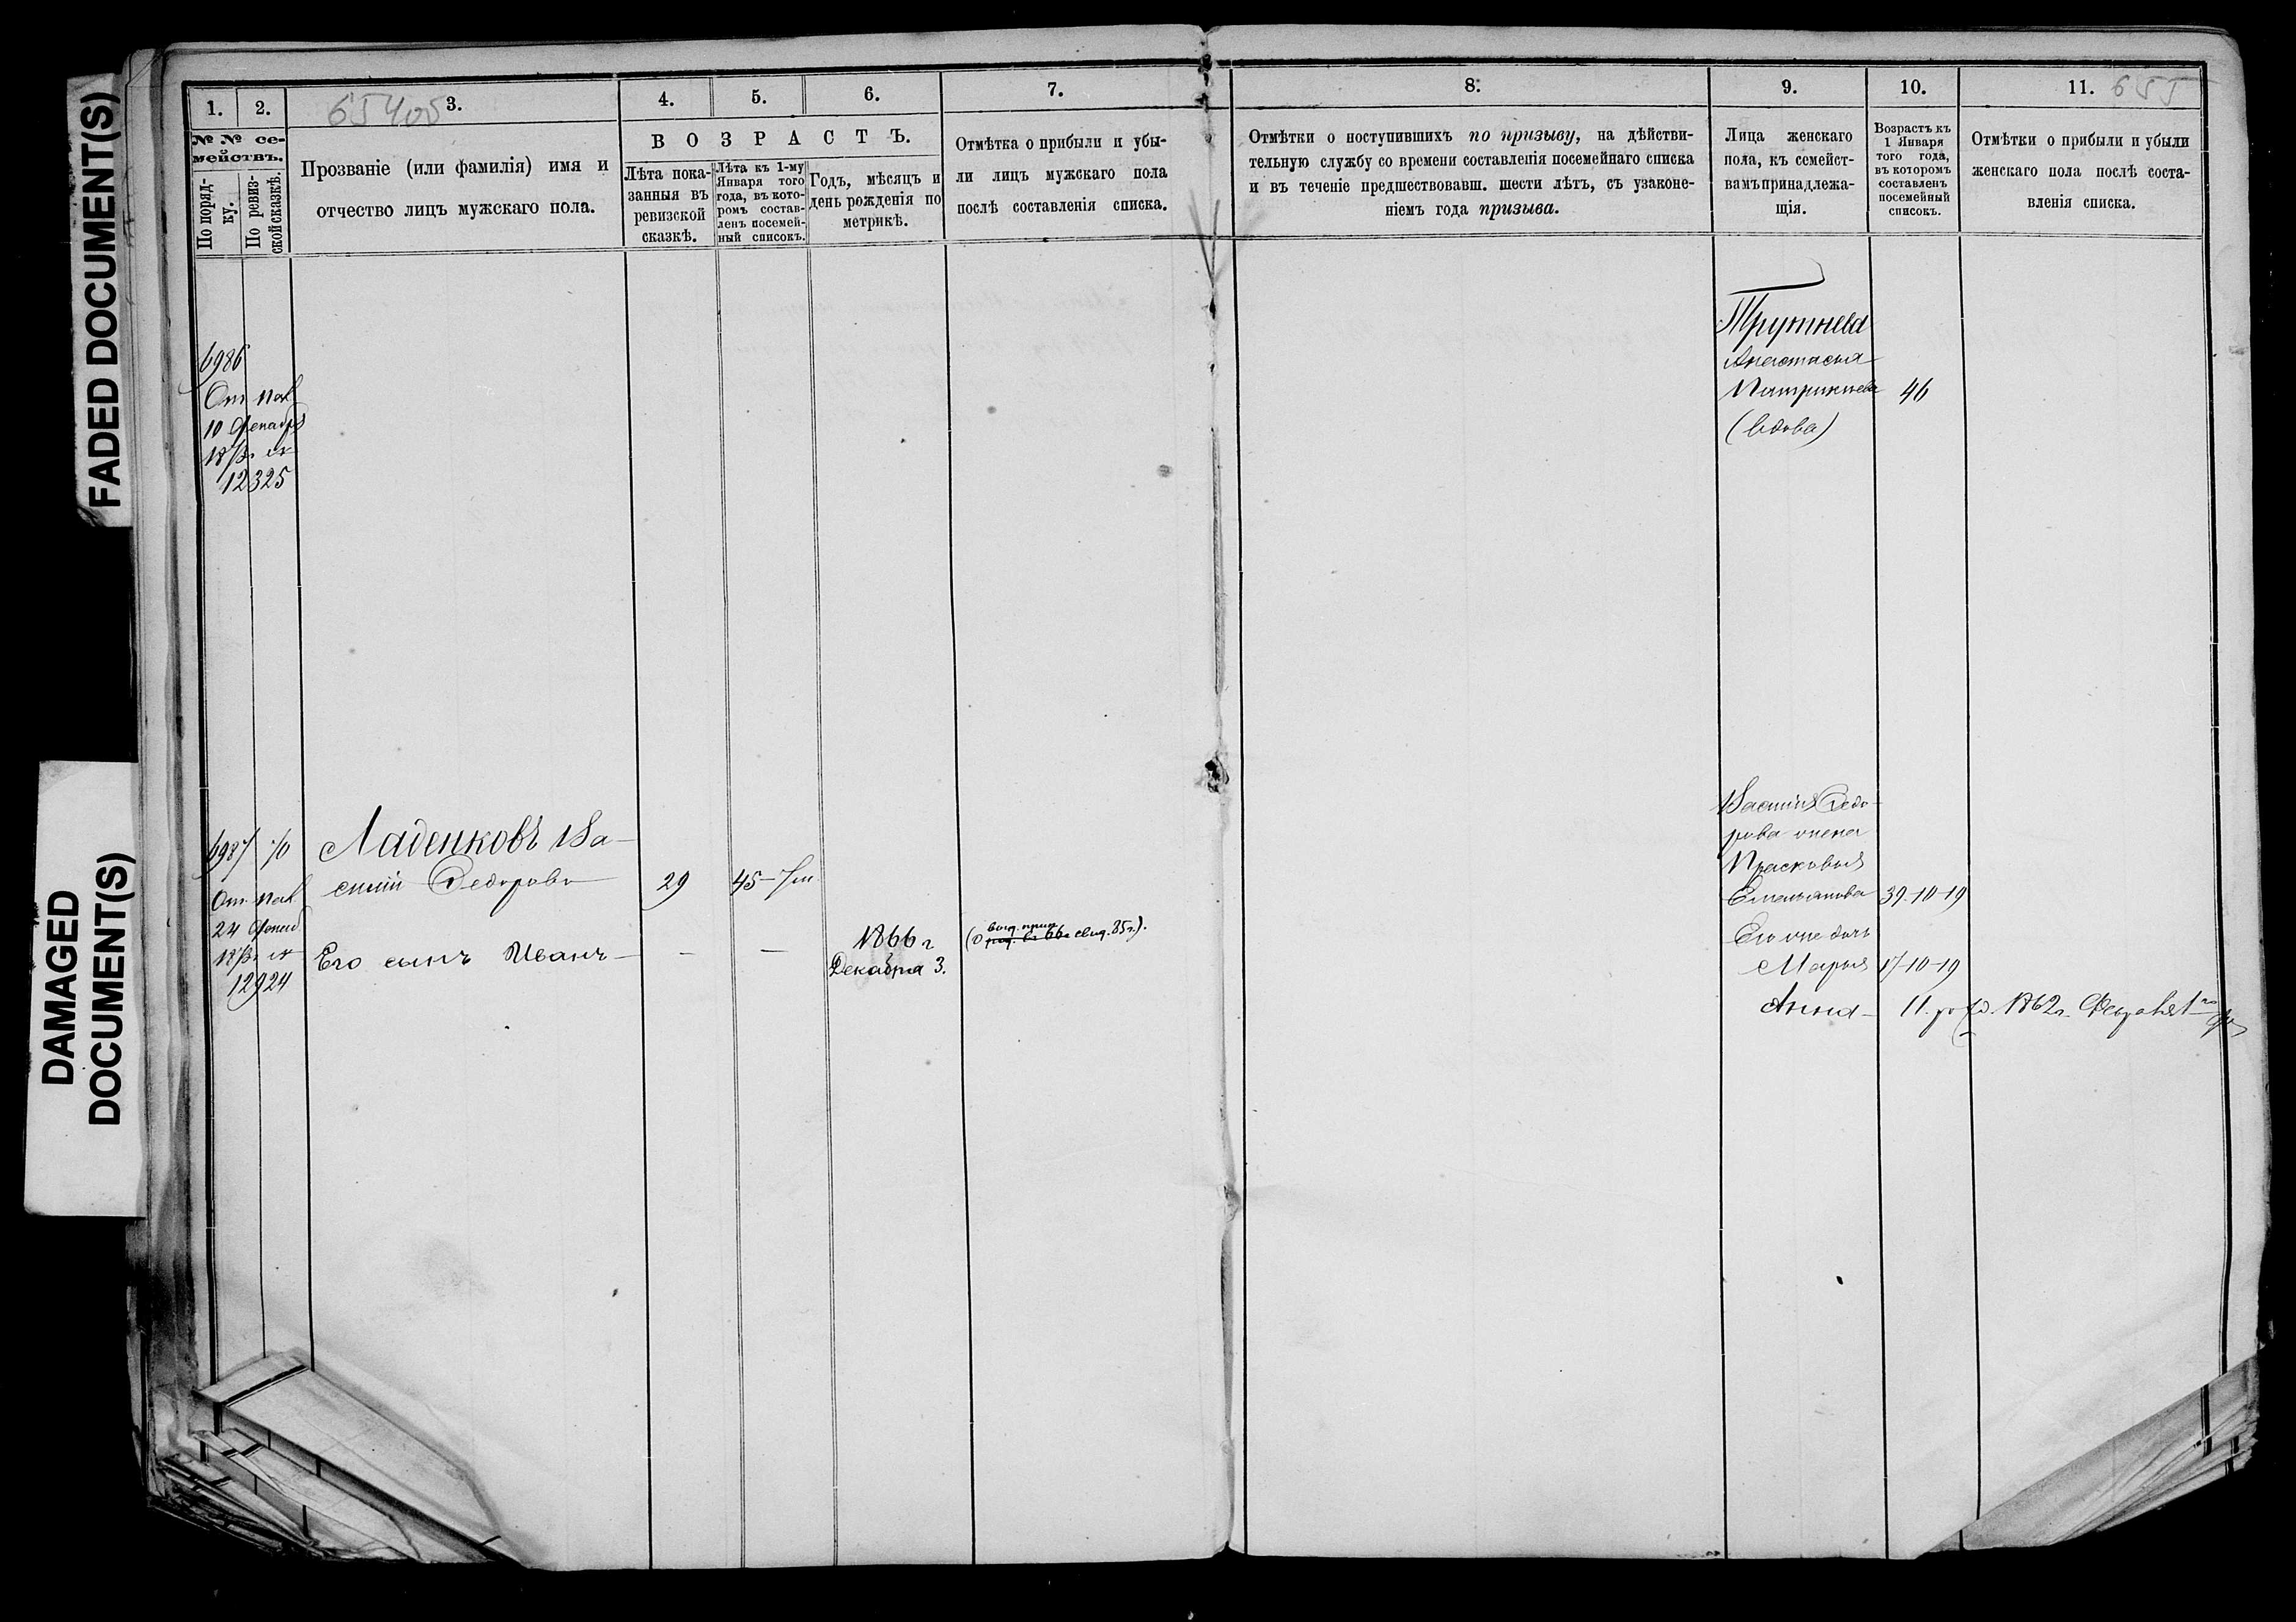 FADED DOCUMENT(S)
DAMAGED
DOCUMENT(S)
1.
2.
3.
4.
5.
6.
7.
8.
9.
10.
11.
655
№ № се-
мействъ.
По поряд-
ку.
По ревиз-
ской сказкѣ.
Прозваніе (или фамилія) имя и
отчество лицъ мужскаго пола.
ВОЗРАСТЪ.
Лѣта пока-
занныя въ
ревизской
сказкѣ.
Лѣта къ 1-му
Января того
года, въ кото-
ромъ состав-
ленъ посемей-
ный списокъ.
Годъ, мѣсяцъ и
день рожденія по
метрикѣ.
Отмѣтка о прибыли и убы-
ли лицъ мужскаго пола
послѣ составленія списка.
Отмѣтки о поступившихъ по призыву, на дѣйстви-
тельную службу со времени составленія посемейнаго списка
и въ теченіе предшествовавш. шести лѣтъ, съ узаконе-
ніемъ года призыва.
Лица женскаго
пола, къ семейст-
вамъ принадлежа-
щія.
Возрастъ къ
1 Января
того года,
въ которомъ
составленъ
посемейный
списокъ.
Отмѣтки о прибыли и убыли
женскаго пола послѣ соста-
вленія списка.
6986
12325
Трутнева
Анастасья
Патрикнева 46
(вдова)
6987 70
12924
Ладенковъ Ва-
силій Федоровъ 29 45
Его сынъ Иванъ — — 1866 г
Декабря 3.
Василія Федо-
рова жена
Прасковья
Емельянова 39-10-19
Его же дочь
Марья 17-10-19
Анна 11 1862 г. Февраля 1